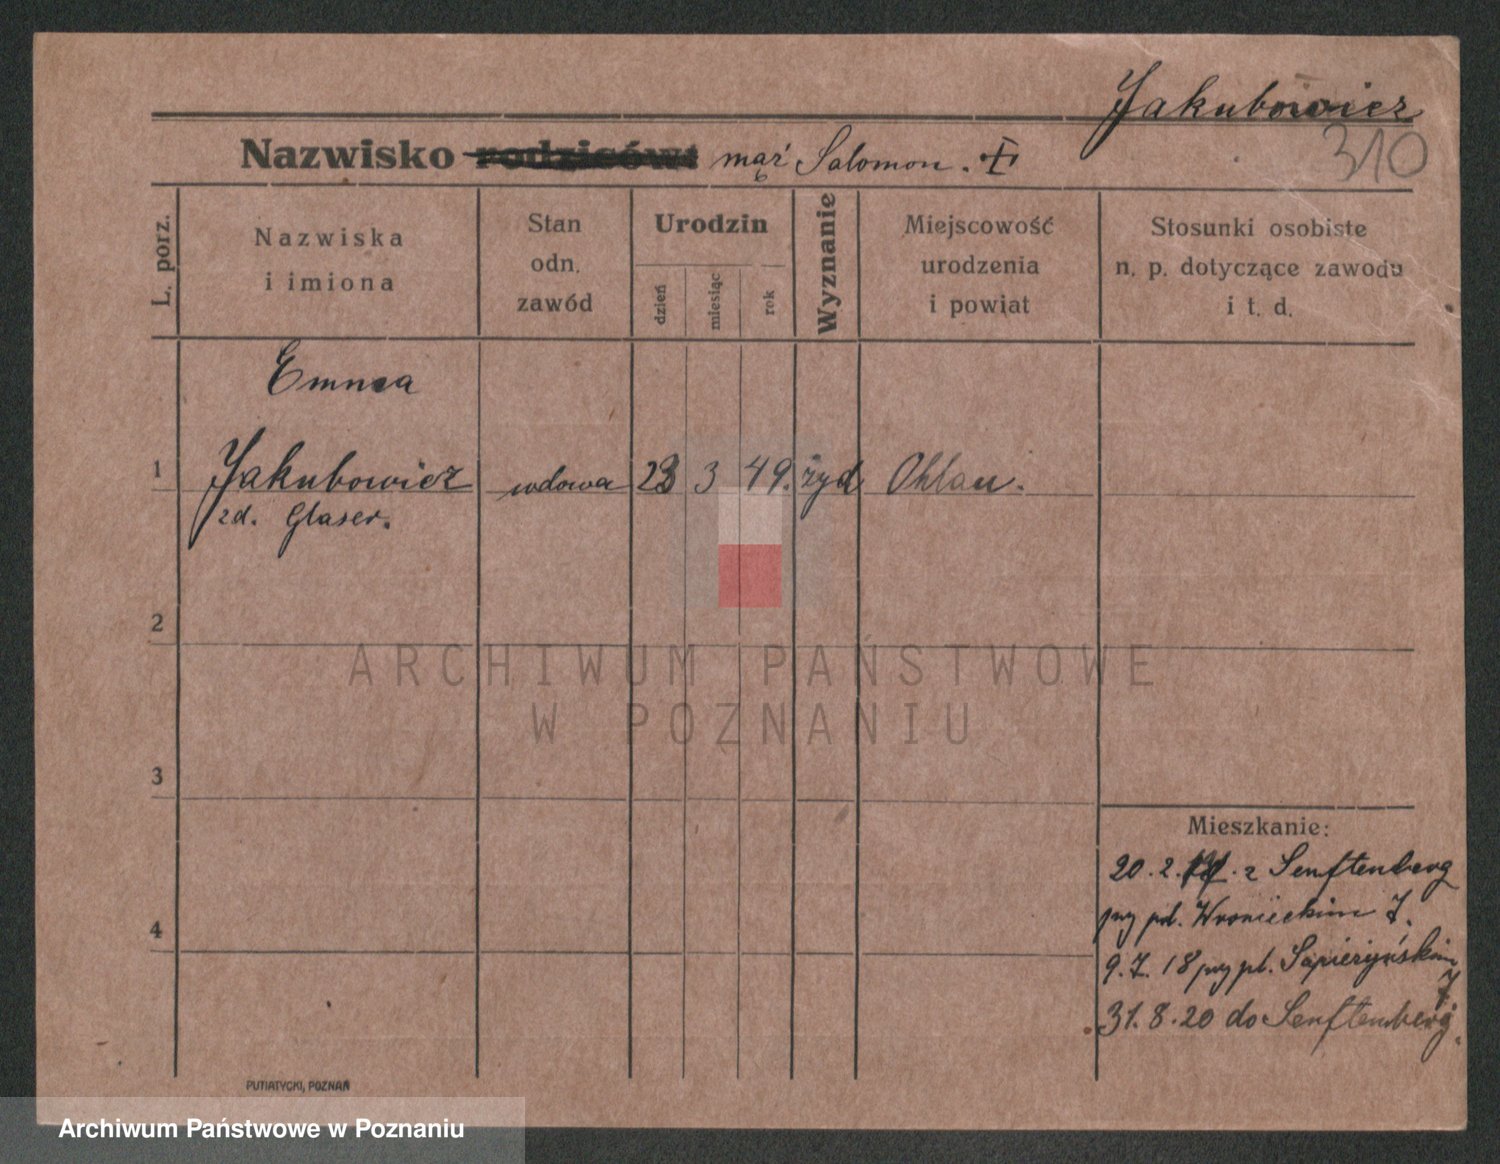 Jakubowicz
310
Nazwisko rodziców: mąż Salomon.
L. porz.
Nazwiska
i imiona
Stan
odn.
zawód
Urodzin
dzień
miesiąc
rok
Wyznanie
Miejscowość
urodzenia
i powiat
Stosunki osobiste
n. p. dotyczące zawodu
i t. d.
Emma
1 Jakubowicz wdowa 23 3 49. żyd Ohlau.
zd. Glaser.
2
ARCHIWUM PAŃSTWOWE
W POZNANIU
3
4
Mieszkanie:
20. 2. z Senftenberg
przy pl. Wronieckim 7.
9. 7. 18 przy pl. Sapieżyńskim
7
31. 8. 20 do Senftenberg.
PUTIATYCKI, POZNAŃ
Archiwum Państwowe w Poznaniu